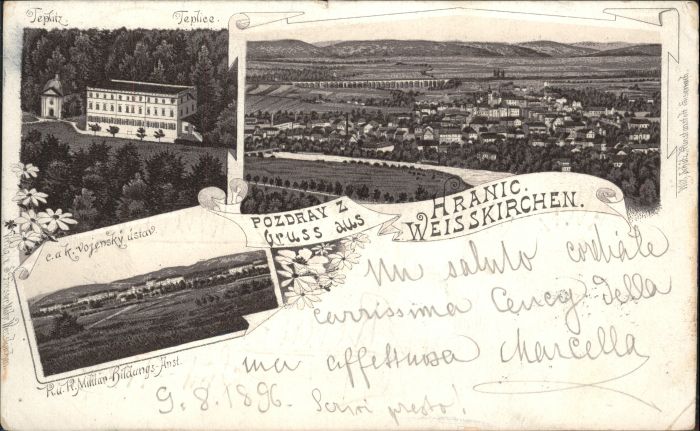 Teplitz Teplice.
POZDRAV Z HRANIC.
Gruss aus WEISSKIRCHEN.
c. a k. vojenský ústav
K. u. K. Militär-Bildungs-Anst.
Un saluto cordiale
carissima Cency della
tua affettuosa Marcella
9. 8. 1896. Scrivi presto!